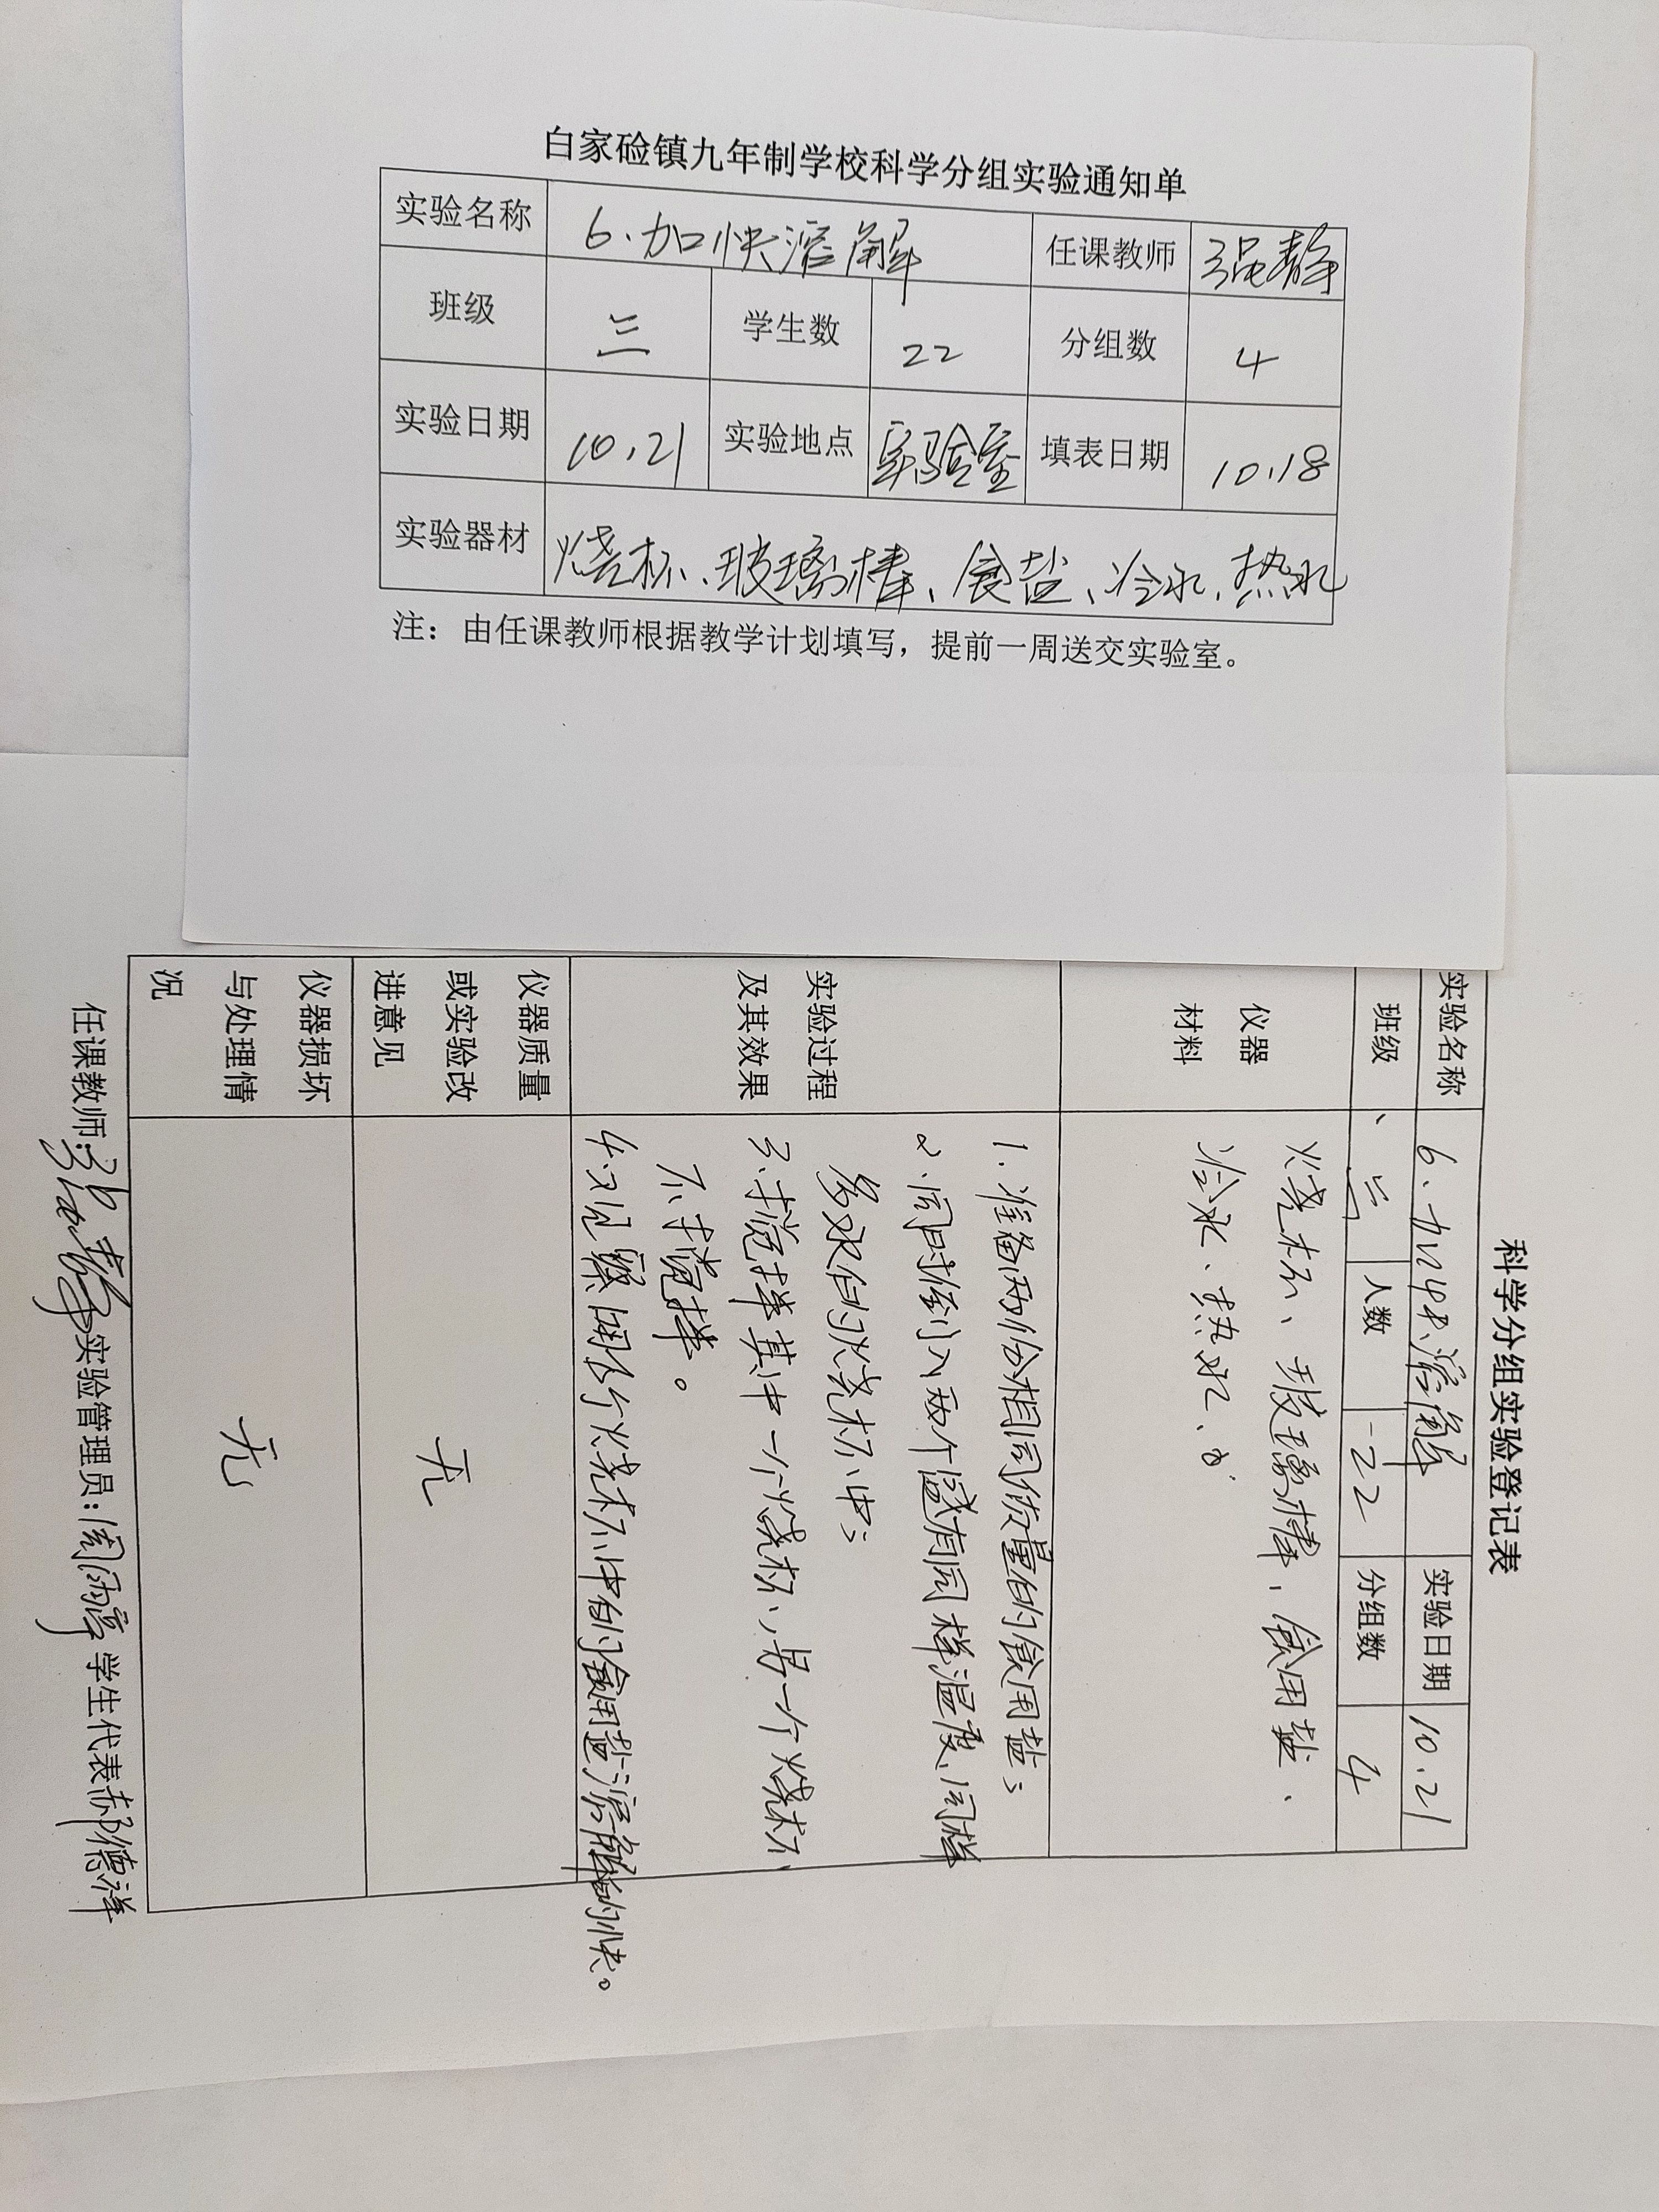 白家硷镇九年制学校科学分组实验通知单
实验名称 6.加快溶解 任课教师 强静
班级 三 学生数 22 分组数 4
实验日期 10.21 实验地点 实验室 填表日期 10.18
实验器材 烧杯、玻璃棒、食盐、冷水、热水
注：由任课教师根据教学计划填写，提前一周送交实验室。
科学分组实验登记表
实验名称 6.加快溶解 实验日期 10.21
班级 三 人数 22 分组数 4
仪器
材料
烧杯、玻璃棒、食用盐、
冷水、热水、
实验过程
及其效果
1.准备两份相同质量的食用盐；
2.同时倒入两个盛有同样温度、同样
多水的烧杯中；
3.搅拌其中一个烧杯、另一个烧杯
不搅拌。
4.观察哪个烧杯中的食用盐溶解的快。
仪器质量
或实验改
进意见
无
仪器损坏
与处理情
况
无
任课教师:强静 实验管理员: 学生代表郝德祥